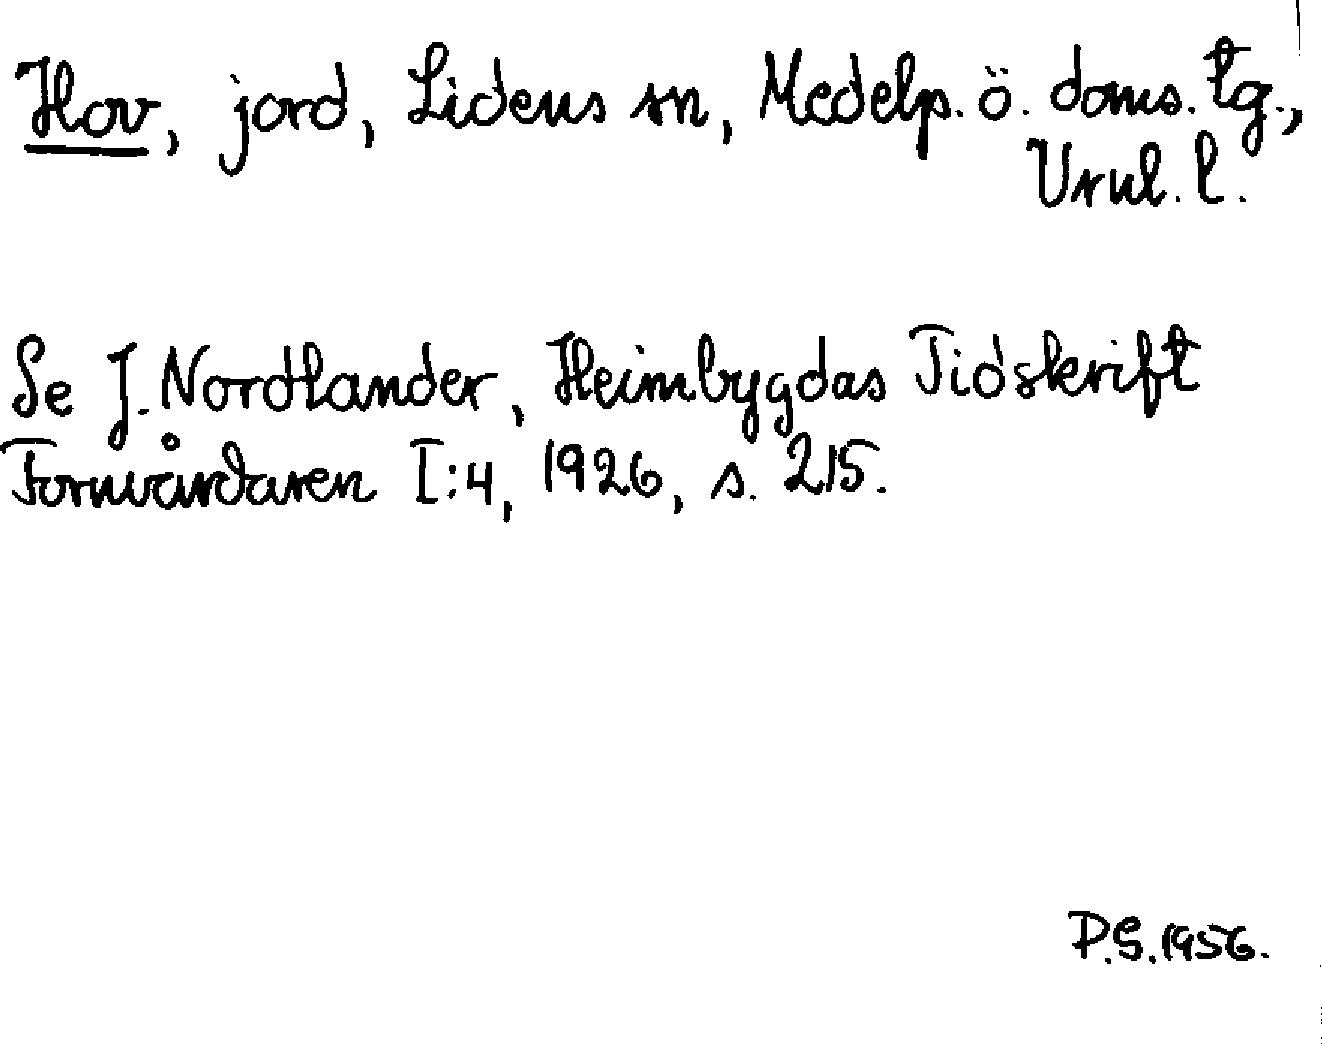 Hov, jord, Lidens sn, Medelp. ö. doms. tg.,
Vrnl. l.
Se J. Nordlander, Heimbygdas Tidskrift
Fornvårdaren I:4, 1926, s. 215.
P.S. 1956.